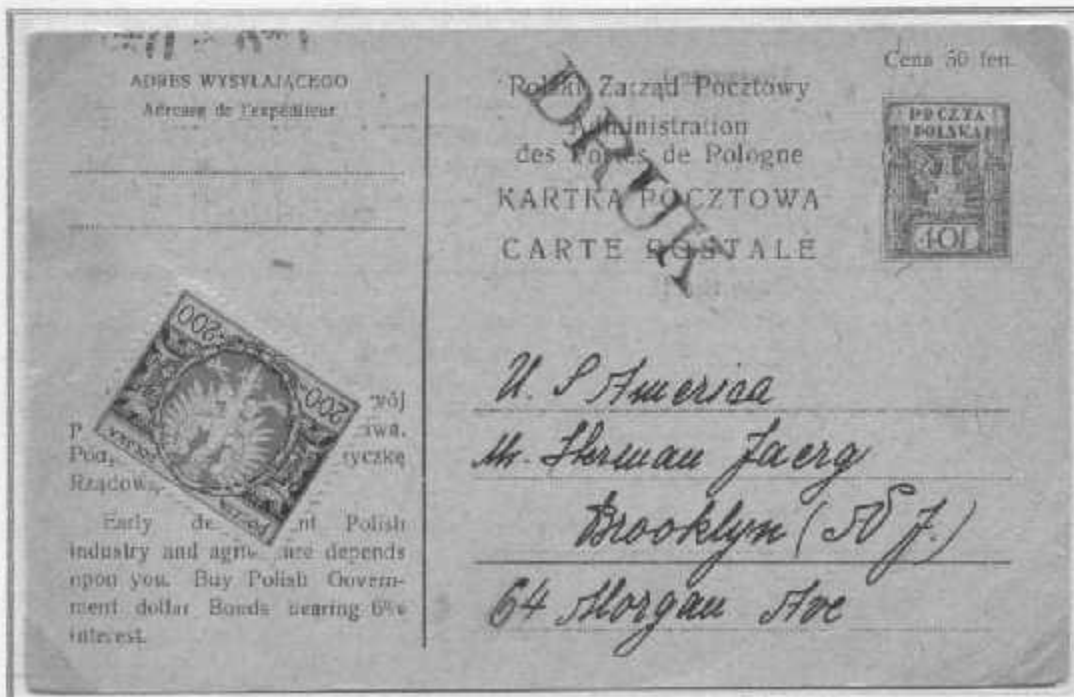 ADRES WYSYŁAJĄCEGO
Adresse de l'expéditeur
200 200
POCZTA POLSKA
wój
P
awa.
Pod
tyczkę
Rządow
Early de nt Polish
industry and agri ure depends
upon you. Buy Polish Govern-
ment dollar Bonds bearing 6%
interest.
Cena 50 fen.
Polski Zarząd Pocztowy
Administration
des Postes de Pologne
KARTKA POCZTOWA
CARTE POSTALE
DRUK
POCZTA
POLSKA
40f
U. S America
Mr. Herman Jaerg
Brooklyn (N J.)
64 Morgan Ave